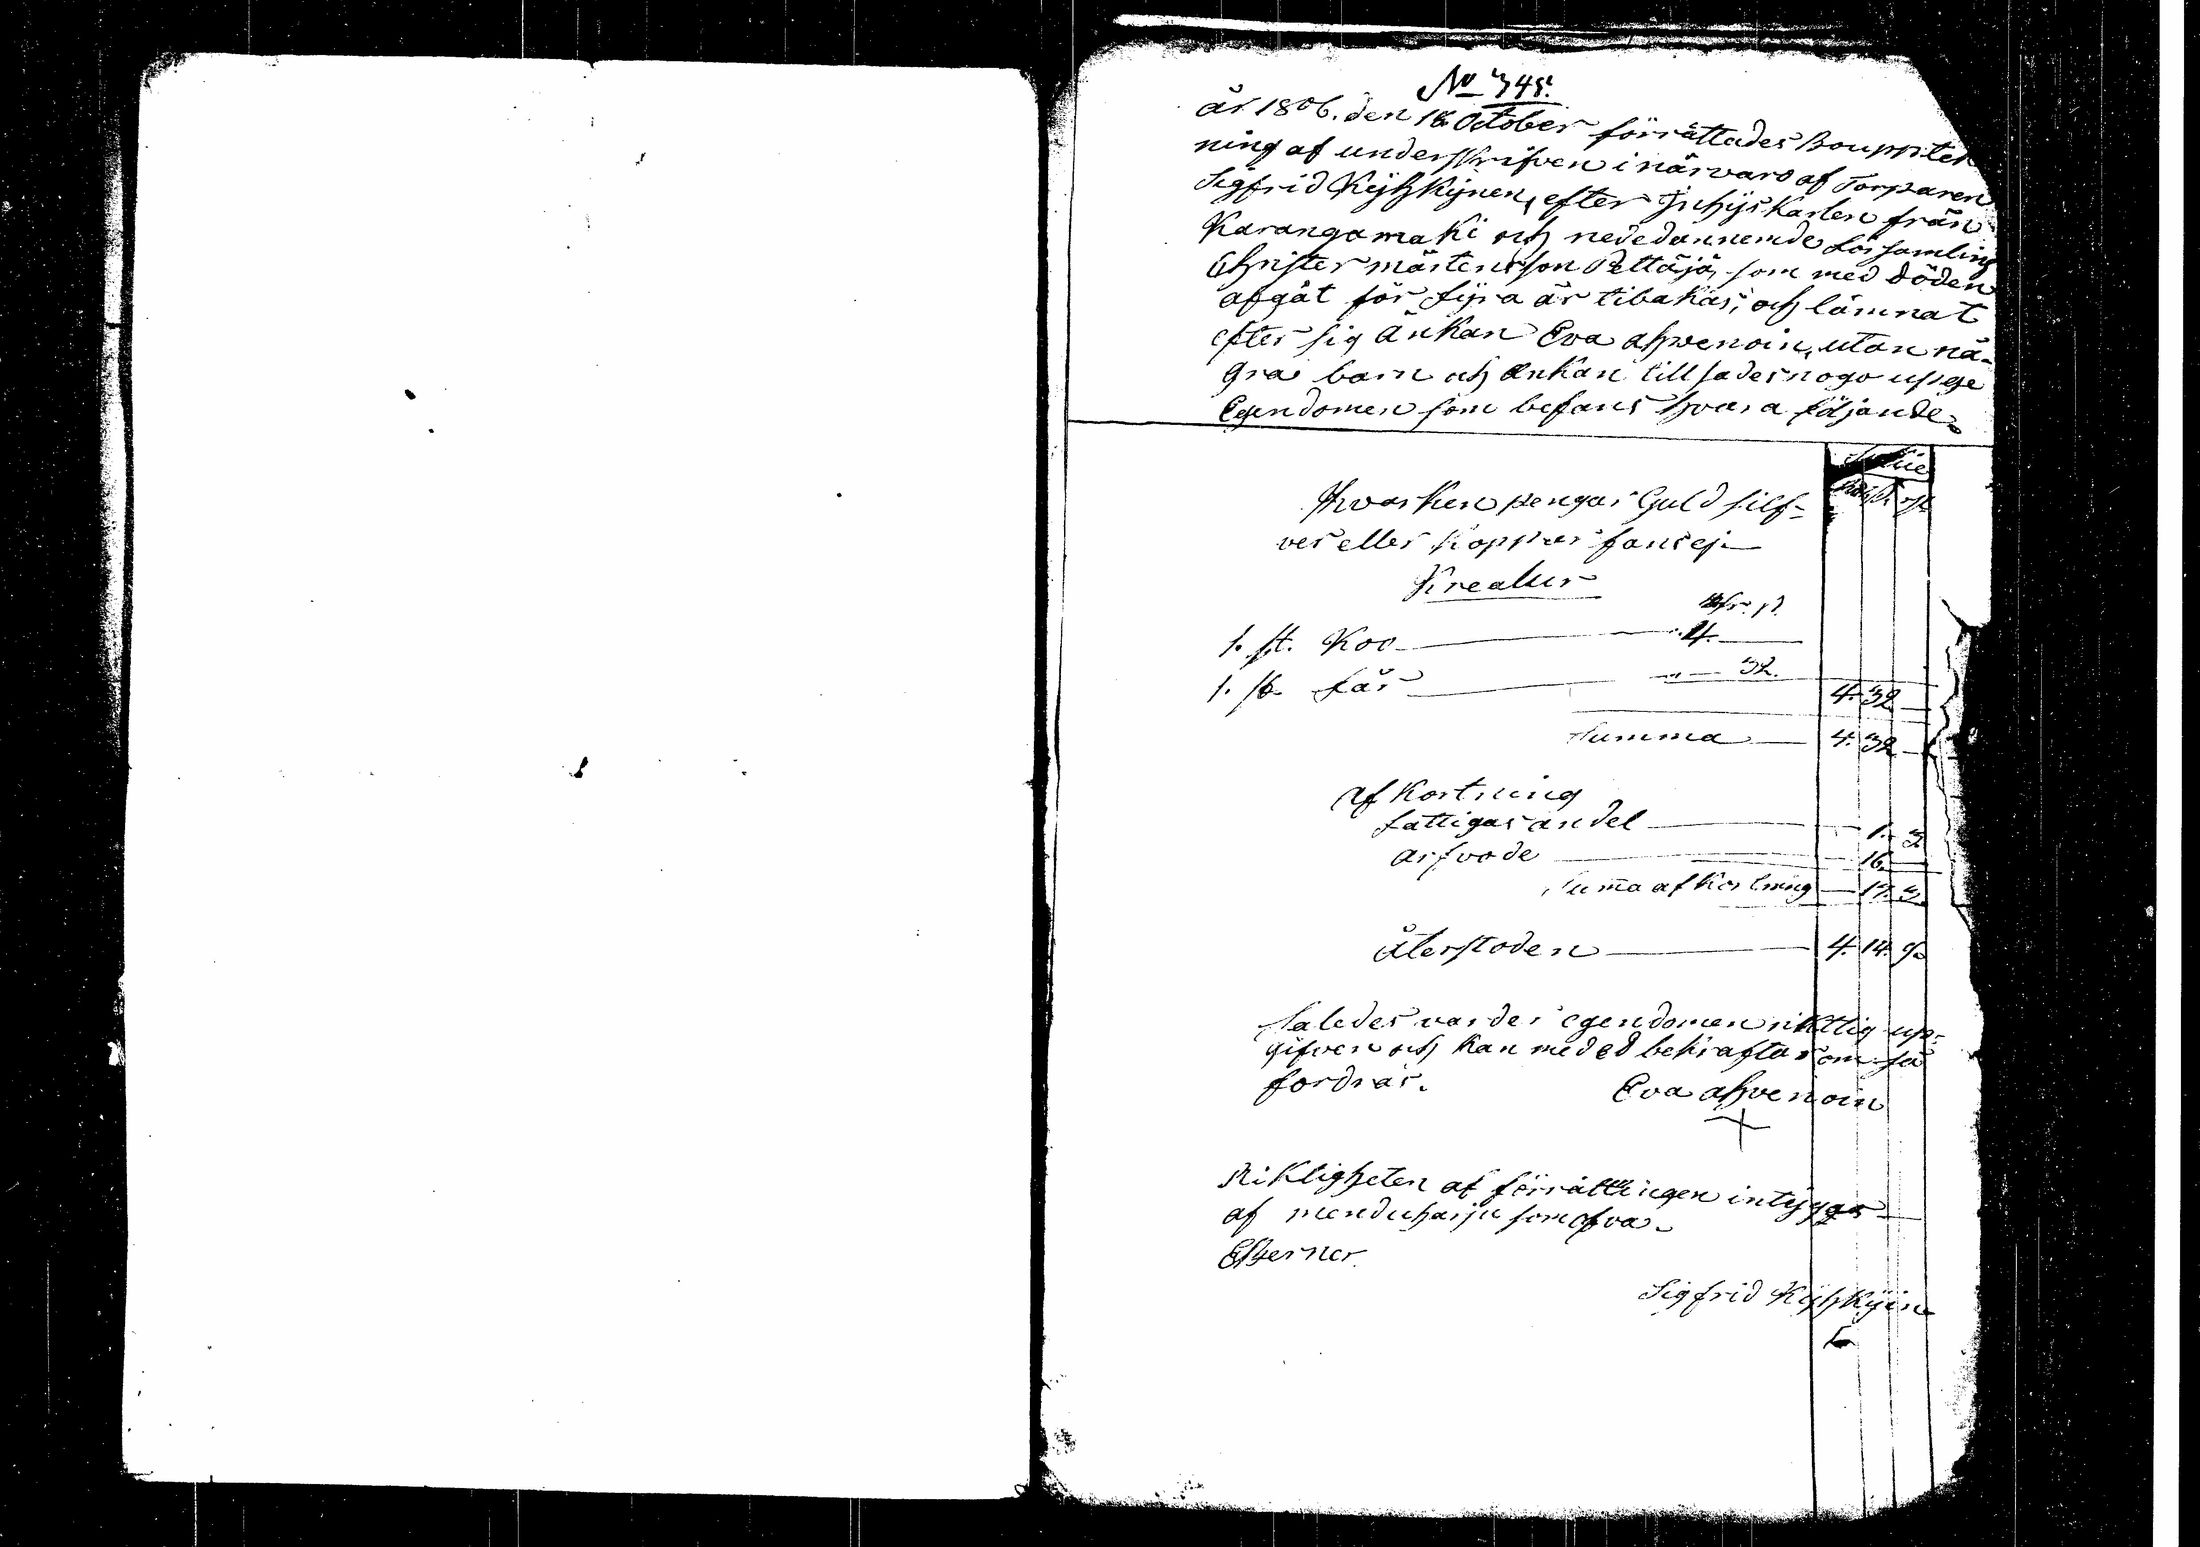 No 345.
år 1806. den 18 October förrättades Boupptek
ning af underskrifven i närvaro af Torparen
Sigfrid Kyhkynen, efter Inhys Karlen från
Karangamaki och nededannemde församling
Christer mårtensson Pettäjä, som med döden
afgåt för fyra år tibakas, och lämnat
efter sig änkan Eva ahvenoin, utan nå-
gra barn och Enkan till sades nogo upge
Egendomen som befans hvara följande
hvarken pengar Guld silf-
ver eller Koppar fans ej
Kreatur
1. st. Koo 4.
1. st. får 32. 4. 32
Summa 4. 32
af Kortning
fattigas andel 1. 3
arfvode 16
Suma af Kortning 17. 3
Återstoden 4. 14. 9
Saledes var der egendomen riktig up-
gifven och kan med ed bekraftas om så
fordras.
Eva ahvenoin
Riktigheten af förrättningen intygas
af menduharju som ofvan
Sigfrid Kyhkyin